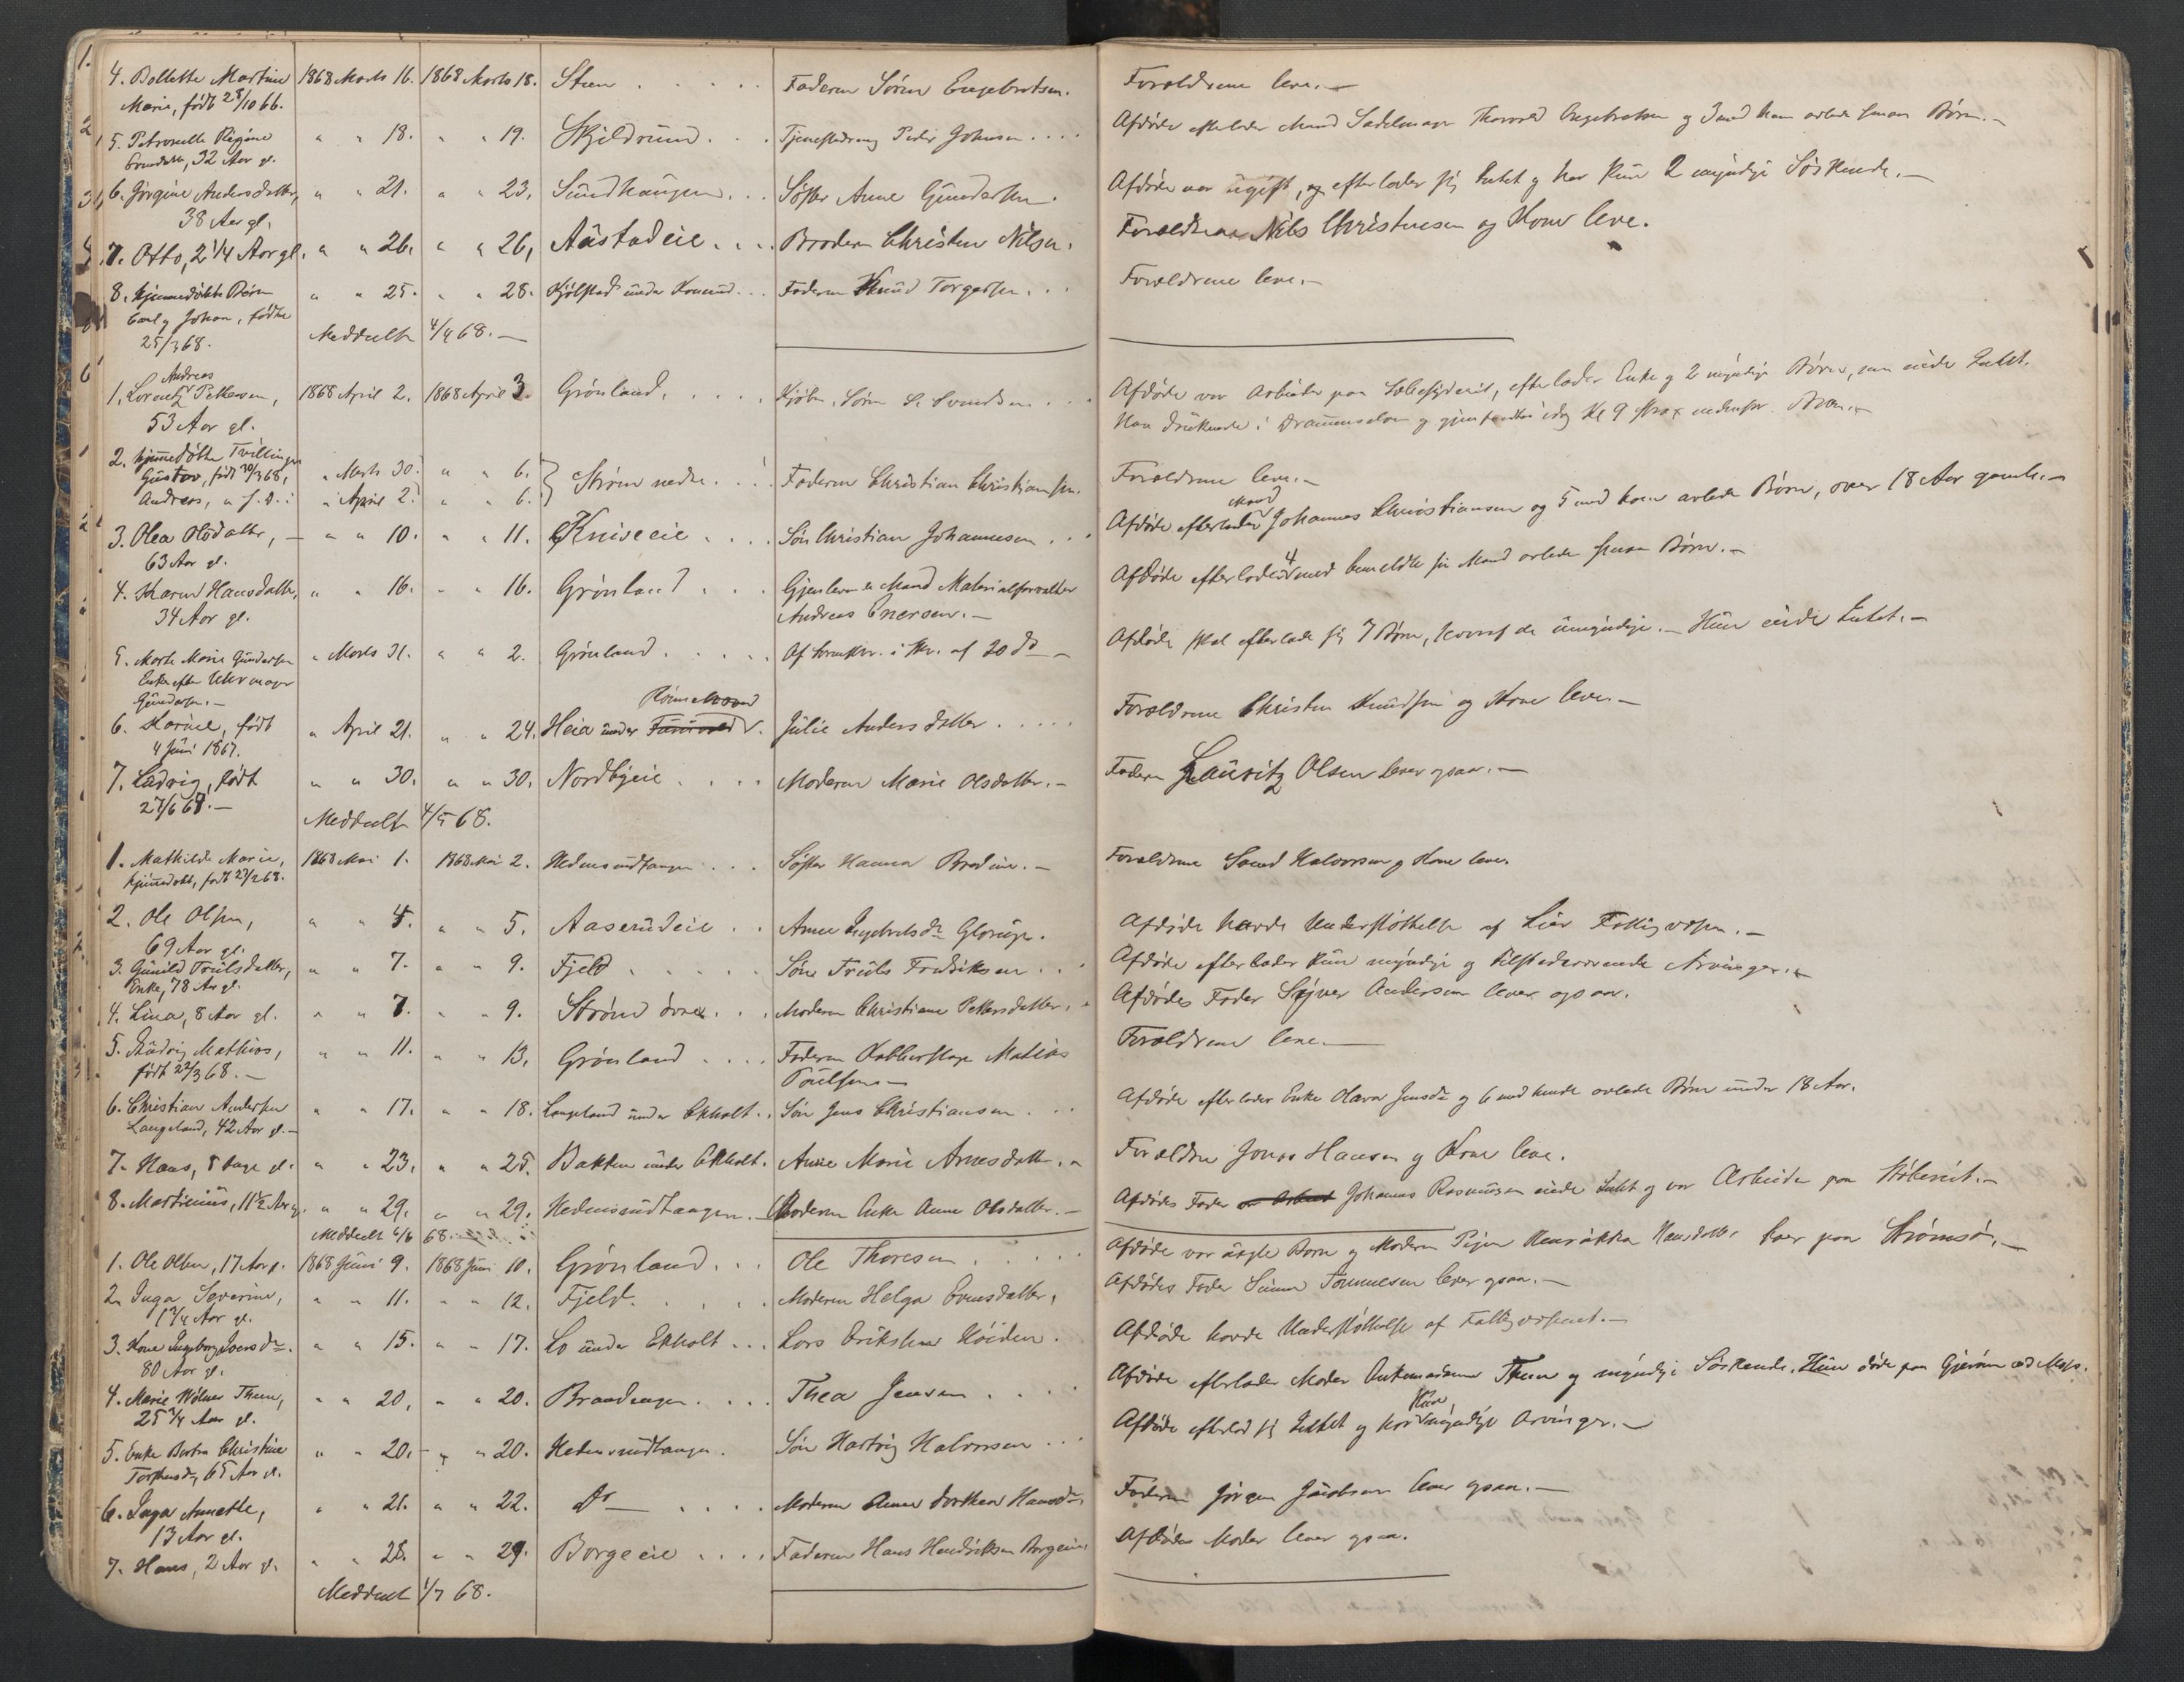 4. Bollette Martine 1868 Marts 16. 1868 Marts 18. Steen . . . . . Faderen Søren Engebretsen. Forældrene leve. —
Marie, født 28/10 66.
5. Petronelle Regine " " 18. " " 19. Skjeldrum . . . Tjenestedreng Peder Johnsen . . . . Afdøde efterlader Mand Sadelmager Thorvald Engebretsen og 3 med ham avlede smaa Børn. —
32 Aar gl.
6. Jørgine Andersdatter, " " 21. " " 23. Sundhaugen . . . Søster Anne Gundersen. Afdøde var ugift, og efterlader sig Intet og har kun 2 myndige Søskende. —
38 Aar gl.
7. Otto, 2 1/4 Aar gl. " " 26. " " 26, Aastadeie . . . . Broderen Christen Nilsen. Forældrene Nils Christensen og Kone leve.
8. hjemmedøbte Børn " " 25. " " 28. Kjølstad under . . . Faderen Knud Torgersen . . . Forældrene leve. —
Carl og Johan, fødte
25/3 68. Meddeelt 4/4 68. —
Andreas
1. Lorentz Pettersen, 1868 April 2. 1868 April 3. Grønland. . . . . Kjøbm. Søren S. Svendsen . . . Afdøde var Arbeider paa , efterlader Enke og 2 myndige Børn, men eiede Intet.
53 Aar gl. Han druknede i Drammenselven og gjenfandtes idag Kl 9 strax nedenfor
2. hjemmedøbte Tvillinger
Gustav, født 30/3 68, " Marts 30. " " 6. Strøm nedre . . . Faderen Christian Christiansen. Forældrene leve. —
Andreas, " f. d. : " April 2. " " 6.
Mand
3. Olea Olsdatter, — " " 10. " " 11. Kniveeie . . . . Søn Christian Johannesen . . . Afdøde efterlader Johannes Christiansen og 5 med ham avlede Børn, over 18 Aar gamle. —
63 Aar gl.
4. Karen Hansdatter, " " 16. " " 16. Grønland . . . Gjenlevende Mand Materialforvalter Afdøde efterlader 4 med bemeldte sin Mand avlede smaa Børn. —
34 Aar gl. Andreas Enersen. —
5. Marte Marie Gundersen " Marts 31. " " 2. Grønland . . . . . Af i Skr. af 20 ds — Afdøde skal efterlade sig 7 Børn, hvoraf de umyndige. — Hun eiede Intet. —
Enke efter Uhrmager
Gundersen. —
6. Karine, født " April 21. " " 24. Heia under . Julie Andersdatter . . . . . Forældrene Christen Knudsen og Kone leve. —
4 Juni 1867.
7. Ludvig, født " " 30. " " 30. Nordbyeie . . . . Moderen Marie Olsdatter. — Faderen Lauritz Olsen lever ogsaa. —
27/6 67. —
Meddeelt 4/5 68.
1. Mathilde Marie, 1868 Mai 1. 1868 Mai 2. Hedensundtangen . . . Søster Hanna Bredine. — Forældrene Halvorsen og Kone leve.
hjemmedøbt, født 27/2 68.
2. Ole Olsen, " " 4. " " 5. Aaserudeie . . Anne Ingebretsdr. Glorüge. Afdøde havde Understøttelse af Lier Fattigvæsen. —
69 Aar gl.
3. Gunild Truelsdatter, " " 7. " " 9. Fjeld . . . . . Søn Truls Fredriksen . . . Afdøde efterlader kun myndige og tilstedeværende Arvinger. —
Enke, 78 Aar gl.
4. Lina, 8 Aar gl. " " 7. " " 9. Strømd øvre . . . Moderen Christiane Pettersdatter. . Afdødes Fader Syver Andersen lever ogsaa.
5. Ludvig Mathias, " " 11. " " 13. Grønland . . . . Faderen Kobberslager Matias Forældrene leve. —
født 22/3 68. — Poulsen —
6. Christian Andersen " " 17. " " 18. Langeland under Ekholt . . Søn Jens Christiansen . . . Afdøde efterlader Enke Olava Jensdr og 6 med hende avlede Børn under 18 Aar.
Langeland, 42 Aar gl. —
7. Hans, 8 Dage gl. " " 23. " " 25. Bakken under Ekholt. Anne Marie Arnesdatter. — Forældre Jonas Hansen og Kone leve.
8. Martinius, 11 1/2 Aar g. " " 29. " " 29. Hedensundtangen. — Moderen Enke Anne Olsdatter. — Afdødes Fader Johannes Rasmussen eiede Intet og var Arbeider paa Støberiet. —
Meddeelt 4/6 68.
1. Ole Olsen, 17 Aar g. 1868 Juni 9. 1868 Juni 10. Grønland . . . Ole Thoresen . . . . Afdøde var uægte Barn og Moderen Pigen Hansdatter boer paa Strømsø. —
2. Inga Severine, " " 11. " " 12. Fjeld . . . . . Moderen Helga Evensdatter. Afdødes Fader Simen Tommesen lever ogsaa. —
1 3/4 Aar gl.
3. Kone Ingeborg Iversdr. " " 15. " " 17. Lo under Ekholt . . . Lars Eriksen Høiden. Afdøde havde Understøttelse af Fattigvæsenet. —
80 Aar gl.
4. Marie Wilmer Thum, " " 20. " " 20. Brandengen . . . . Thea Jensen . . . . Afdøde efterlader Moder Enkemadame Thum og myndige Søskende. Hun døde paa Gjerøen ved Moss.
25 3/4 Aar gl.
kun
5. Enke Berta Christine " " 20. " " 20. Hedensundtangen. Søn Hartvig Halvorsen . . . Afdøde efterlod sig Intet og har myndige Arvinger. —
65 Aar gl.
6. Inga Annette, " " 21. " " 22. do — . . . . Moderen Anne Dorthea Hansdr. Faderen Jørgen Jacobsen lever ogsaa. —
13 Aar gl.
7. Hans, 2 Aar gl. " " 28. " " 29. Borgeeie . . . . Faderen Hans Hendriksen Borgeeie. Afdødes Moder lever ogsaa.
Meddeelt 1/7 68.